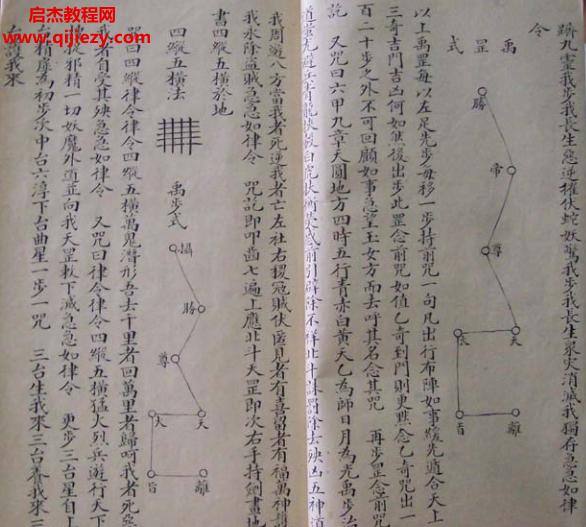 启杰教程网
qijiezy.com
蹄九灵我步我長生惡逆摧伏蛇妖驚我步我長生衆火消滅我獨存急急如律
令
禹罡式
勝
帝
尊
天
旨
離
以上禹罡每以左足先步每移一步持前咒一句凡出行布陣如事緩先適合天上
三奇吉門吉凶何如然後出步此罡念前咒如值乙奇到門則更黙念乙奇咒出一
百二十步之外不可回顧如事急望玉女方而去呼其名念其咒 再步罡念前咒
訖 又咒曰六甲九章天圓地方四時五行青赤白黄天乙為師日月為光禹步治
我周遊八方當我者死逆我者亡左社右稷冦賊伏匿見者有喜留者有福萬神
我永除盗賊急急如律令 咒訖即叩齒七遍上應北斗天罡即次右手持劍畫地
書四縱五橫於地
四縱五橫法
禹步式
攝
勝
尊
天
旨
離
咒曰四縱律令律令四縱五橫萬鬼潜形吾去千里者回萬里者歸呵我者死
我者自受其殃急急如律令 又咒曰律令律令四縱五橫猛火烈兵遊行天下
邪精一切妖魔外道並向我天罡敕下滅急急如律令 更步三台星自上
台精虚為初步次中台六淳下台曲星一步一咒 三台生我來三台養我來三
台護我來